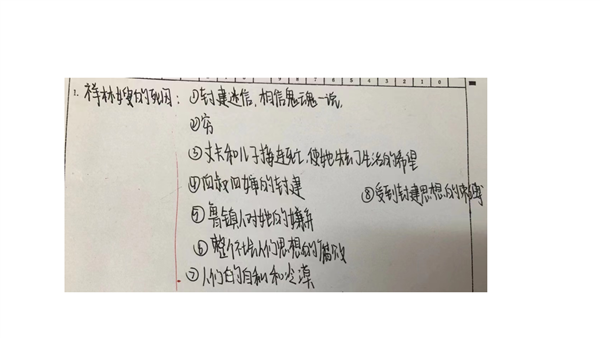 1. 祥林嫂的死因：①封建迷信，相信鬼魂一说，
②穷
③丈夫和儿子接连死亡，使她失去了生活的希望
④四叔四婶的封建
⑧受到封建思想的束缚
⑤鲁镇人对她的嫌弃
⑥整个社会人们思想的腐败
⑦人们的自私和冷漠